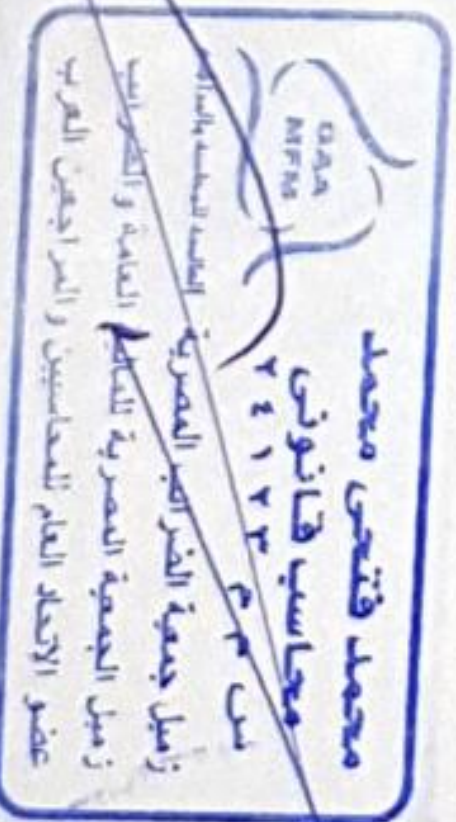 محمد فتحى محمد
محاسب قانونى
س م م ٢٤١٢٣
زميل جمعية الضرائب المصرية
زميل الجمعية المصرية للمالية العامة والضرائب
عضو الاتحاد العام للمحاسبين والمراجعين العرب
DAA
MFM